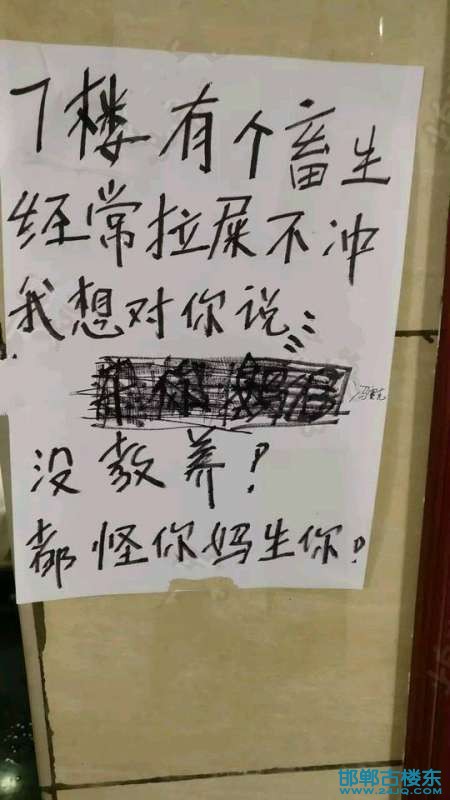 7楼有个畜生
经常拉屎不冲
我想对你说：
没教养！
都怪你妈生你！
邯郸古楼东
www.2ZJQ.COM